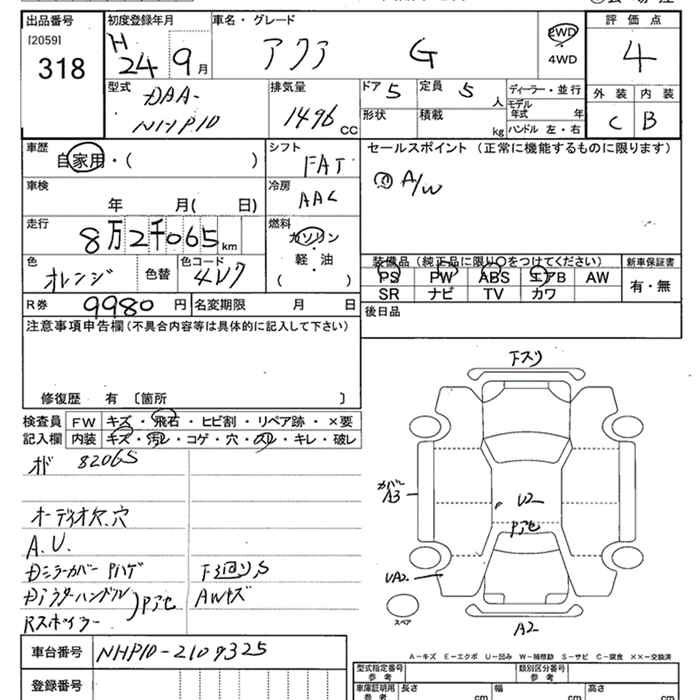 出品番号
[2059]
318
初度登録年月
H 24 9月
車名・グレード
アクア G
2WD
4WD
評価点
4
型式
DAA-
NHP10
排気量
1496 CC
ドア 5
定員 5 人
形状
積載 kg
ディーラー・並行
モデル年式 年
ハンドル 左・右
外装 内装
C B
車歴
自家用・( )
シフト
FAT
セールスポイント (正常に機能するものに限ります)
A/W
車検
年 月( 日)
冷房
AAC
走行
8万2千065km
燃料
ガソリン
・
軽・油
( )
色
オレンジ
色替
色コード
4V7
装備品 (純正品に限り〇をつけてください)
PS PW ABS エアB AW
SR ナビ TV カワ
新車保証書
有・無
R券 9980 円
名変期限 月 日
後日品
注意事項申告欄 (不具合内容等は具体的に記入して下さい)
修復歴 有 〔箇所 〕
検査員
記入欄
FW キズ・飛石・ヒビ割・リペア跡・×要
内装 キズ・汚レ・コゲ・穴・スレ・キレ・破レ
オド 82065
オーディオ欠.穴
A.U.
Dミラーカバー Pハゲ
Dアウターハンドル
Rスポイラー
Pアセ
F3回リS
AWキズ
Fスリ
カバー
A3
U2
Pアセ
UA2
A2
スペア
A-キズ E-エクボ U-凹み W-補修跡 S-サビ C-腐食 XX-交換済
車台番号 NHP10-2109325
登録番号
型式指定番号
参考
類別区分番号
参考
車庫証明用
参考
長さ cm
幅 cm
高さ cm